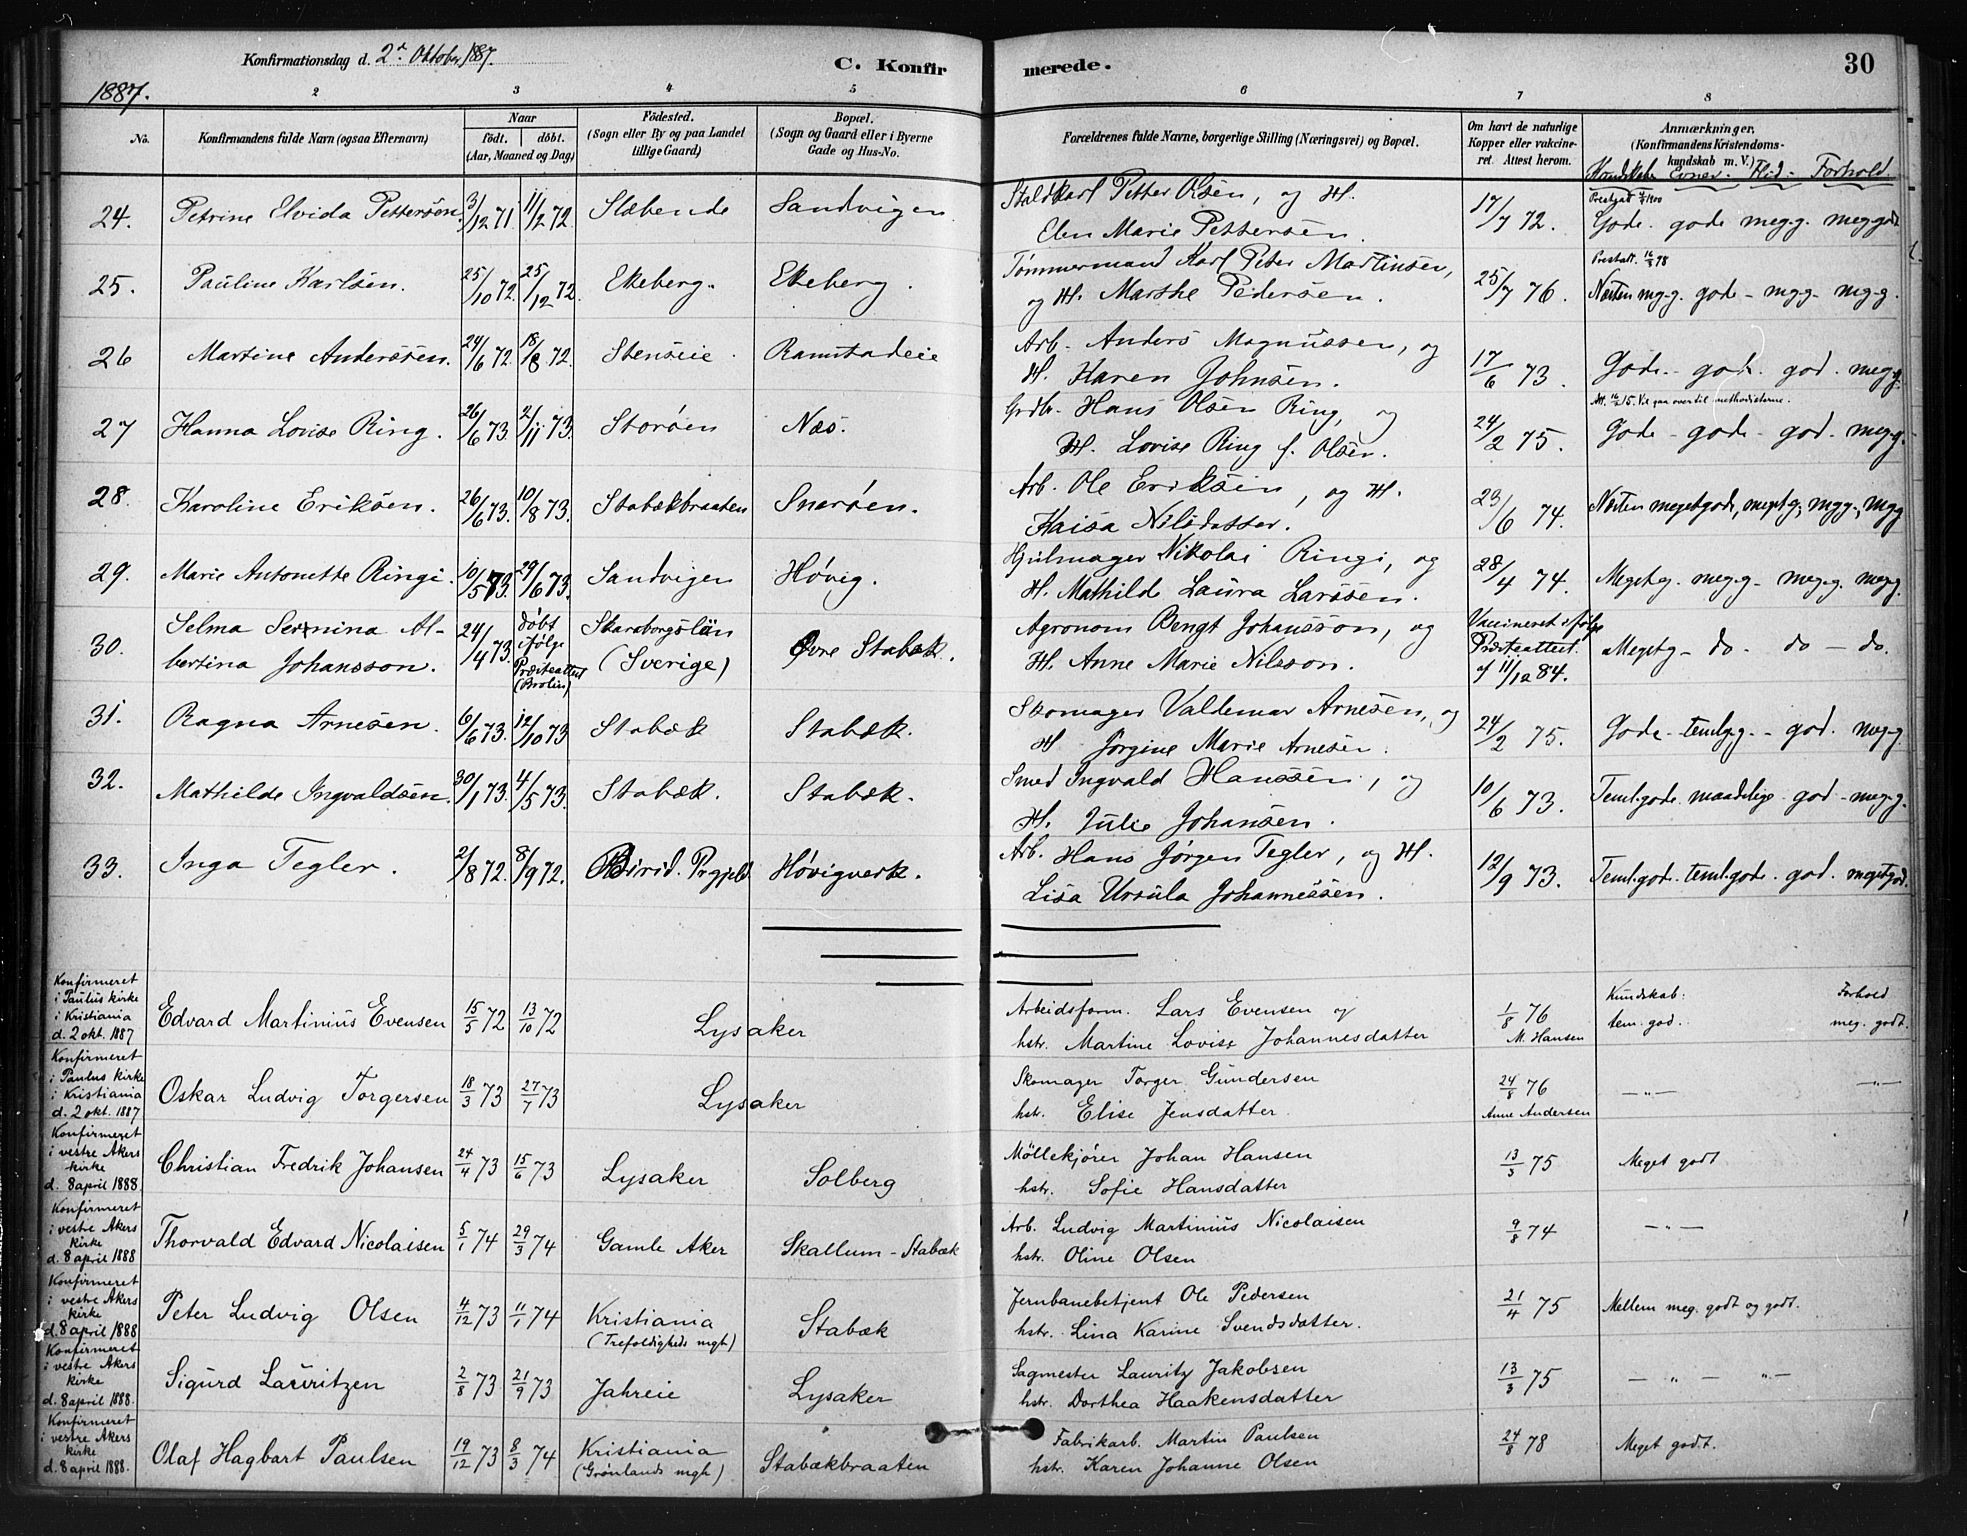 Konfirmationsdag d. 2den Oktober 1887.
C. Konfirmerede.
30
1887.
2 3 4 5 6 7 8
No.
Konfirmandens fulde Navn (ogsaa Efternavn)
Naar
født. døbt.
(Aar, Maaned og Dag)
Fødested.
(Sogn eller By og paa Landet
tillige Gaard)
Bopæl.
(Sogn og Gaard eller i Byerne
Gade og Hus-No.
Forældrenes fulde Navne, borgerlige Stilling (Næringsvei) og Bopæl.
Om havt de naturlige
Kopper eller vakcine-
ret. Attest herom.
Anmærkninger.
(Konfirmandens Kristendoms-
kundskab m. V.)
Kundskaber Evner. Flid. Forhold.
24. Petrine Elvida Pettersøn. 3/12 71 11/2 72 Slæbende Sandvigen Staldkarl Petter Olsen, og H.
Elen Marie Pettersen. 17/7 72. Gode. gode meg.g. meg godt
25. Pauline Karlsen. 25/10 72. 25/12 72. Ekeberg. Ekeberg. Tømmermand Karl Peter Martinsen,
og H. Marthe Pedersen. 25/7 76. Næsten mg.g. gode - mg.g. mg.g.
26 Martine Anderssen. 24/6 72. 18/8 72. Stenseie. Ramstadeie Arb. Anders Magnussen, og
H. Karen Johnsen. 17/6 73. Gode. - gode. god. meg.g.
27 Hanna Lovise Ring. 26/6 73. 2/11 73. Storøen Næs. Grdbr. Hans Olsen Ring, og
H. Lovise Ring f. Olsen. 24/2 75. Gode - gode - god. meg.g.
Att. 16/2 15. Vil gaa over til methodisterne.
28. Karoline Eriksen. 26/6 73. 10/8 73. Stabækbraaten Snarøen. Arb. Ole Eriksen, og H.
Kaisa Nilsdatter. 23/6 74. Næsten megetgode, meget g., mg.g., mg.g
29. Marie Antonette Ringi. 10/5 73. 29/6 73. Sandvigen Høvig. Hjulmager Nikolai Ringi, og
H. Mathilde Laura Larssen. 28/4 74. Meget g. meg.g - meg.g. meg.g.
30. Selma Sernina Al-
bertina Johansson. 24/4 73. døbt
ifølge
Præsteattest
(Brolin) Skaraborgslän
(Sverige) Øvre Stabæk. Agronom Bengt Johansson, og
H. Anne Marie Nilsson. Vaccineret ifølge
Præsteattest
af 11/12 84. Meget g - do - do - do.
31. Ragna Arnesen. 6/6 73. 12/10 73 Stabæk Stabæk. Skomager Valdemar Arnesen, og
H. Jørgine Marie Arnesen. 24/2 75. Gode - temlg.g. - god. meg.g.
32. Mathilde Ingvaldsen. 30/1 73. 4/5 73. Stabæk. Stabæk. Smed Ingvald Hanssen, og
H. Julie Johansen. 10/6 73. Teml.gode. maadelige - god - meg.g.
33. Inga Tegler. 2/8 72. 8/9 72. Birid. Prgjeld Høvigverk. Arb. Hans Jørgen Tegler, og H.
Lisa Ursula Johannessen. 12/9 73. Teml.gode. teml.gode. god. megetgod.
Konfirmeret
i Paulus kirke
i Kristiania
d. 2 okt. 1887 Edvard Martinius Evensen 15/5 72 13/10 72 Lysaker Arbeidsform. Lars Evensen og
hstr. Martine Lovise Johannesdatter 1/8 76
M. Hansen Kundskab: Forhold
tem. god. meg. godt.
Konfirmeret
i Paulus kirke
i Kristiania
d. 2 okt. 1887 Oskar Ludvig Torgersen 18/3 73 27/7 73 Lysaker Skomager Torger Gundersen
hstr. Elise Jensdatter. 24/8 76
Anne Andersen —"— —"—
Konfirmeret
i vestre Akers
kirke
d. 8 april 1888. Christian Fredrik Johansen 24/4 73 15/6 73 Lysaker Solberg Möllekjører Johan Hansen
hstr. Sofie Hansdatter 13/3 75 Meget godt
Konfirmeret
i vestre Akers
kirke
d. 8 april 1888 Thorvald Edvard Nicolaisen 5/1 74 29/3 74 Gamle Aker Skallum - Stabæk Arb. Ludvig Martinius Nicolaisen
hstr. Oline Olsen 9/8 74 —"—
Konfirmeret
i vestre Akers
kirke
d. 8 april 1888 Peter Ludvig Olsen 4/12 73 11/1 74 Kristiania
(Trefoldigheds mgh) Stabæk Jernbanebetjent Ole Pedersen
hstr. Lina Karine Svendsdatter. 21/4 75 Mellem meg. godt og godt.
Konfirmeret
i vestre Akers
kirke
d. 8 april 1888. Sigurd Lauritzen 2/8 73 21/9 73 Jahreie Lysaker Sagmester Lauritz Jakobsen
hstr. Dorthea Haakensdatter 13/3 75 — " — " —
Konfirmeret
i vestre Akers
kirke
d. 8 april 1888. Olaf Hagbart Paulsen 19/12 73 8/3 74 Kristiania
(Grønlands mgh) Stabækbraaten Fabrikarb. Martin Paulsen
hstr. Karen Johanne Olsen 24/8 78 Meget godt.